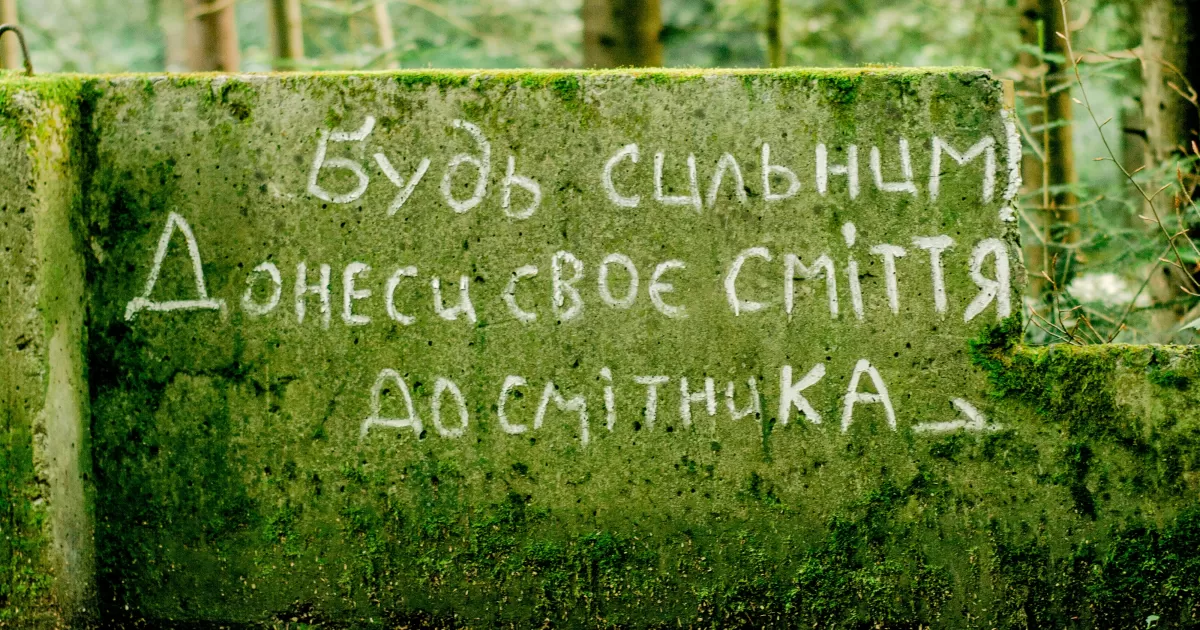 Будь сильним!
Донеси своє сміття
до смітника →